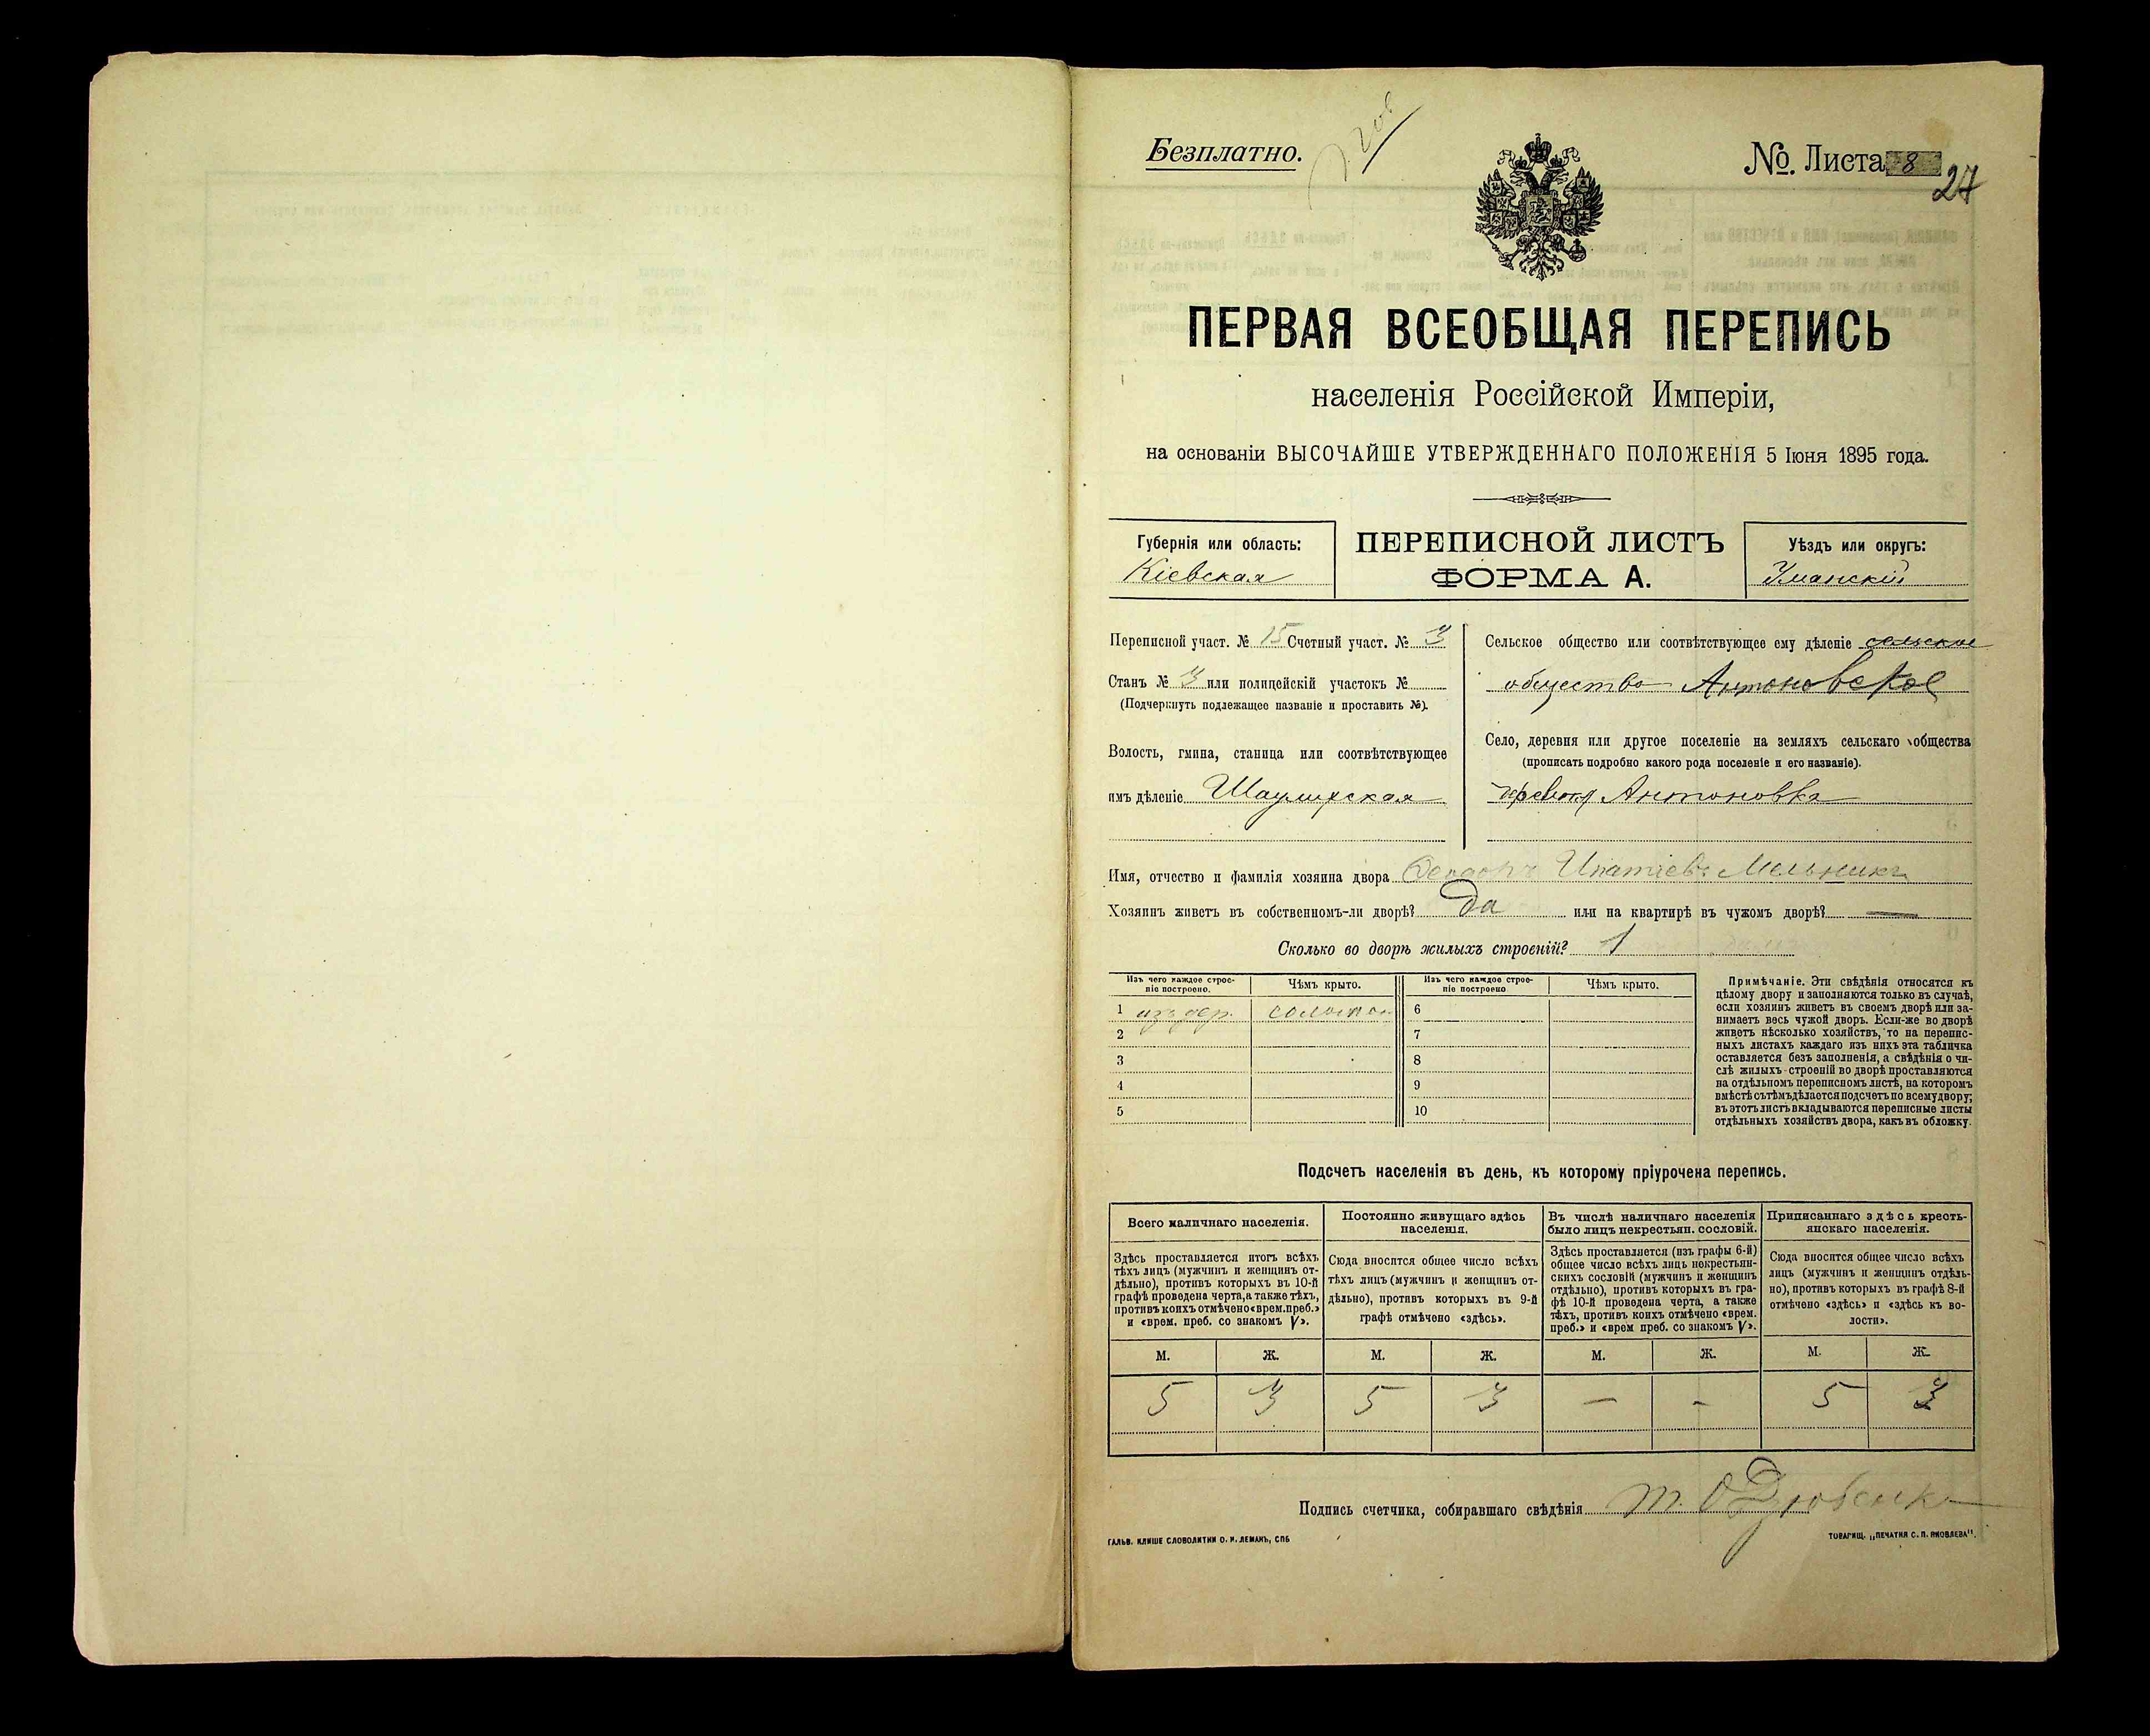 Безплатно.
№ Листа 8
27
ПЕРВАЯ ВСЕОБЩАЯ ПЕРЕПИСЬ
населенія Россійской Имперіи,
на основаніи ВЫСОЧАЙШЕ УТВЕРЖДЕННАГО ПОЛОЖЕНІЯ 5 Іюня 1895 года.
Губернія или область:
Кіевская
ПЕРЕПИСНОЙ ЛИСТЪ
ФОРМА А.
Уѣздъ или округъ:
Уманскій
Переписной участ. № 15 Счетный участ. № 3
Станъ № 3 или полицейскій участокъ №
(Подчеркнуть подлежащее названіе и проставить №).
Волость, гмина, станица или соотвѣтствующее
имъ дѣленіе
Сельское общество или соотвѣтствующее ему дѣленіе сельское
общество Антоновское
Село, деревня или другое поселеніе на земляхъ сельскаго общества
(прописать подробно какого рода поселеніе и его названіе).
деревня Антоновка
Имя, отчество и фамилія хозяина двора Феодоръ Ипатіевъ Мельникъ
Хозяинъ живетъ въ собственномъ-ли дворѣ? Да или на квартирѣ въ чужомъ дворѣ? —
Сколько во дворѣ жилыхъ строеній? 1
Изъ чего каждое строе-
ніе построено.
Чѣмъ крыто.
Изъ чего каждое строе-
ніе построено
Чѣмъ крыто.
1 изъ дер. солом 6
2 7
3 8
4 9
5 10
Примѣчаніе. Эти свѣдѣнія относятся къ
цѣлому двору и заполняются только въ случаѣ,
если хозяинъ живетъ въ своемъ дворѣ или за-
нимаетъ весь чужой дворъ. Если-же во дворѣ
живетъ нѣсколько хозяйствъ, то на перепис-
ныхъ листахъ каждаго изъ нихъ эта табличка
оставляется безъ заполненія, а свѣдѣнія о чи-
слѣ жилыхъ строеній во дворѣ проставляются
на отдѣльномъ переписномъ листѣ, на которомъ
вмѣстѣ съ тѣмъ дѣлается подсчетъ по всему двору;
въ этотъ листъ вкладываются переписные листы
отдѣльныхъ хозяйствъ двора, какъ въ обложку.
Подсчетъ населенія въ день, къ которому пріурочена перепись.
Всего наличнаго населенія.
Здѣсь проставляется итогъ всѣхъ
тѣхъ лицъ (мужчинъ и женщинъ от-
дѣльно), противъ которыхъ въ 10-й
графѣ проведена черта, а также тѣхъ,
противъ коихъ отмѣчено «врем. преб.»
и «врем. преб. со знакомъ V».
Постоянно живущаго здѣсь
населенія.
Сюда вносится общее число всѣхъ
тѣхъ лицъ (мужчинъ и женщинъ от-
дѣльно), противъ которыхъ въ 9-й
графѣ отмѣчено «здѣсь».
Въ числѣ наличнаго населенія
было лицъ некрестьян. сословій.
Здѣсь проставляется (изъ графы 6-й)
общее число всѣхъ лицъ некрестьян-
скихъ сословій (мужчинъ и женщинъ
отдѣльно), противъ которыхъ въ гра-
фѣ 10-й проведена черта, а также
тѣхъ, противъ коихъ отмѣчено «врем.
преб.» и «врем преб. со знакомъ V».
Приписаннаго здѣсь кресть-
янскаго населенія.
Сюда вносится общее число всѣхъ
лицъ (мужчинъ и женщинъ отдѣль-
но), противъ которыхъ въ графѣ 8-й
отмѣчено «здѣсь» и «здѣсь къ во-
лости».
М. Ж. М. Ж. М. Ж. М. Ж.
5 3 5 3 — - 5 3
Подпись счетчика, собиравшаго свѣдѣнія
ГАЛЬВ. КЛИШЕ СЛОВОЛИТНИ О. И. ЛЕМАНЪ, СПБ
ТОВАРИЩ. „ПЕЧАТНЯ С. П. ЯКОВЛЕВА".